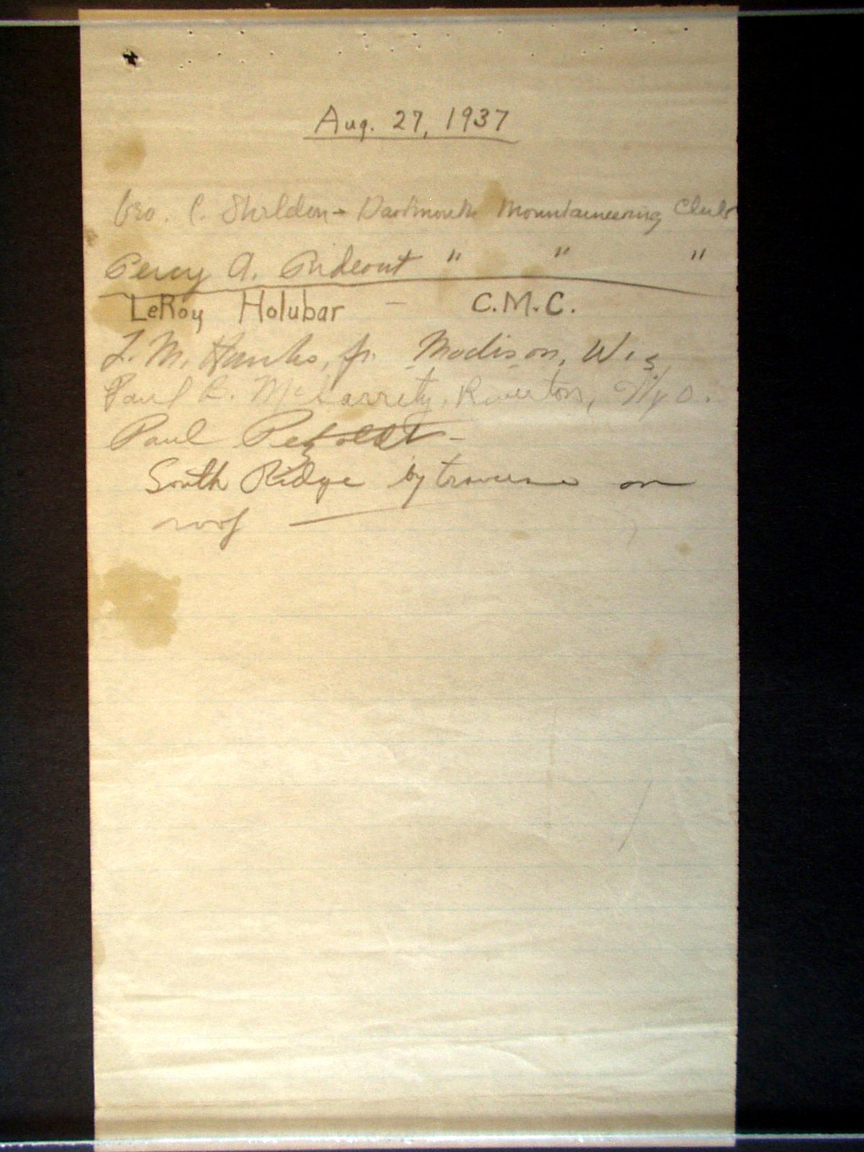 Aug. 27, 1937
Geo. C. Sheldon - Dartmouth Mountaineering Club
Percy A. Rideout " " "
LeRoy Holubar - C.M.C.
L. M. Hanks, Jr. Madison, Wis.
Paul McGarrity, Riverton, Wyo.
Paul Petzoldt -
South Ridge by traverse on
roof —